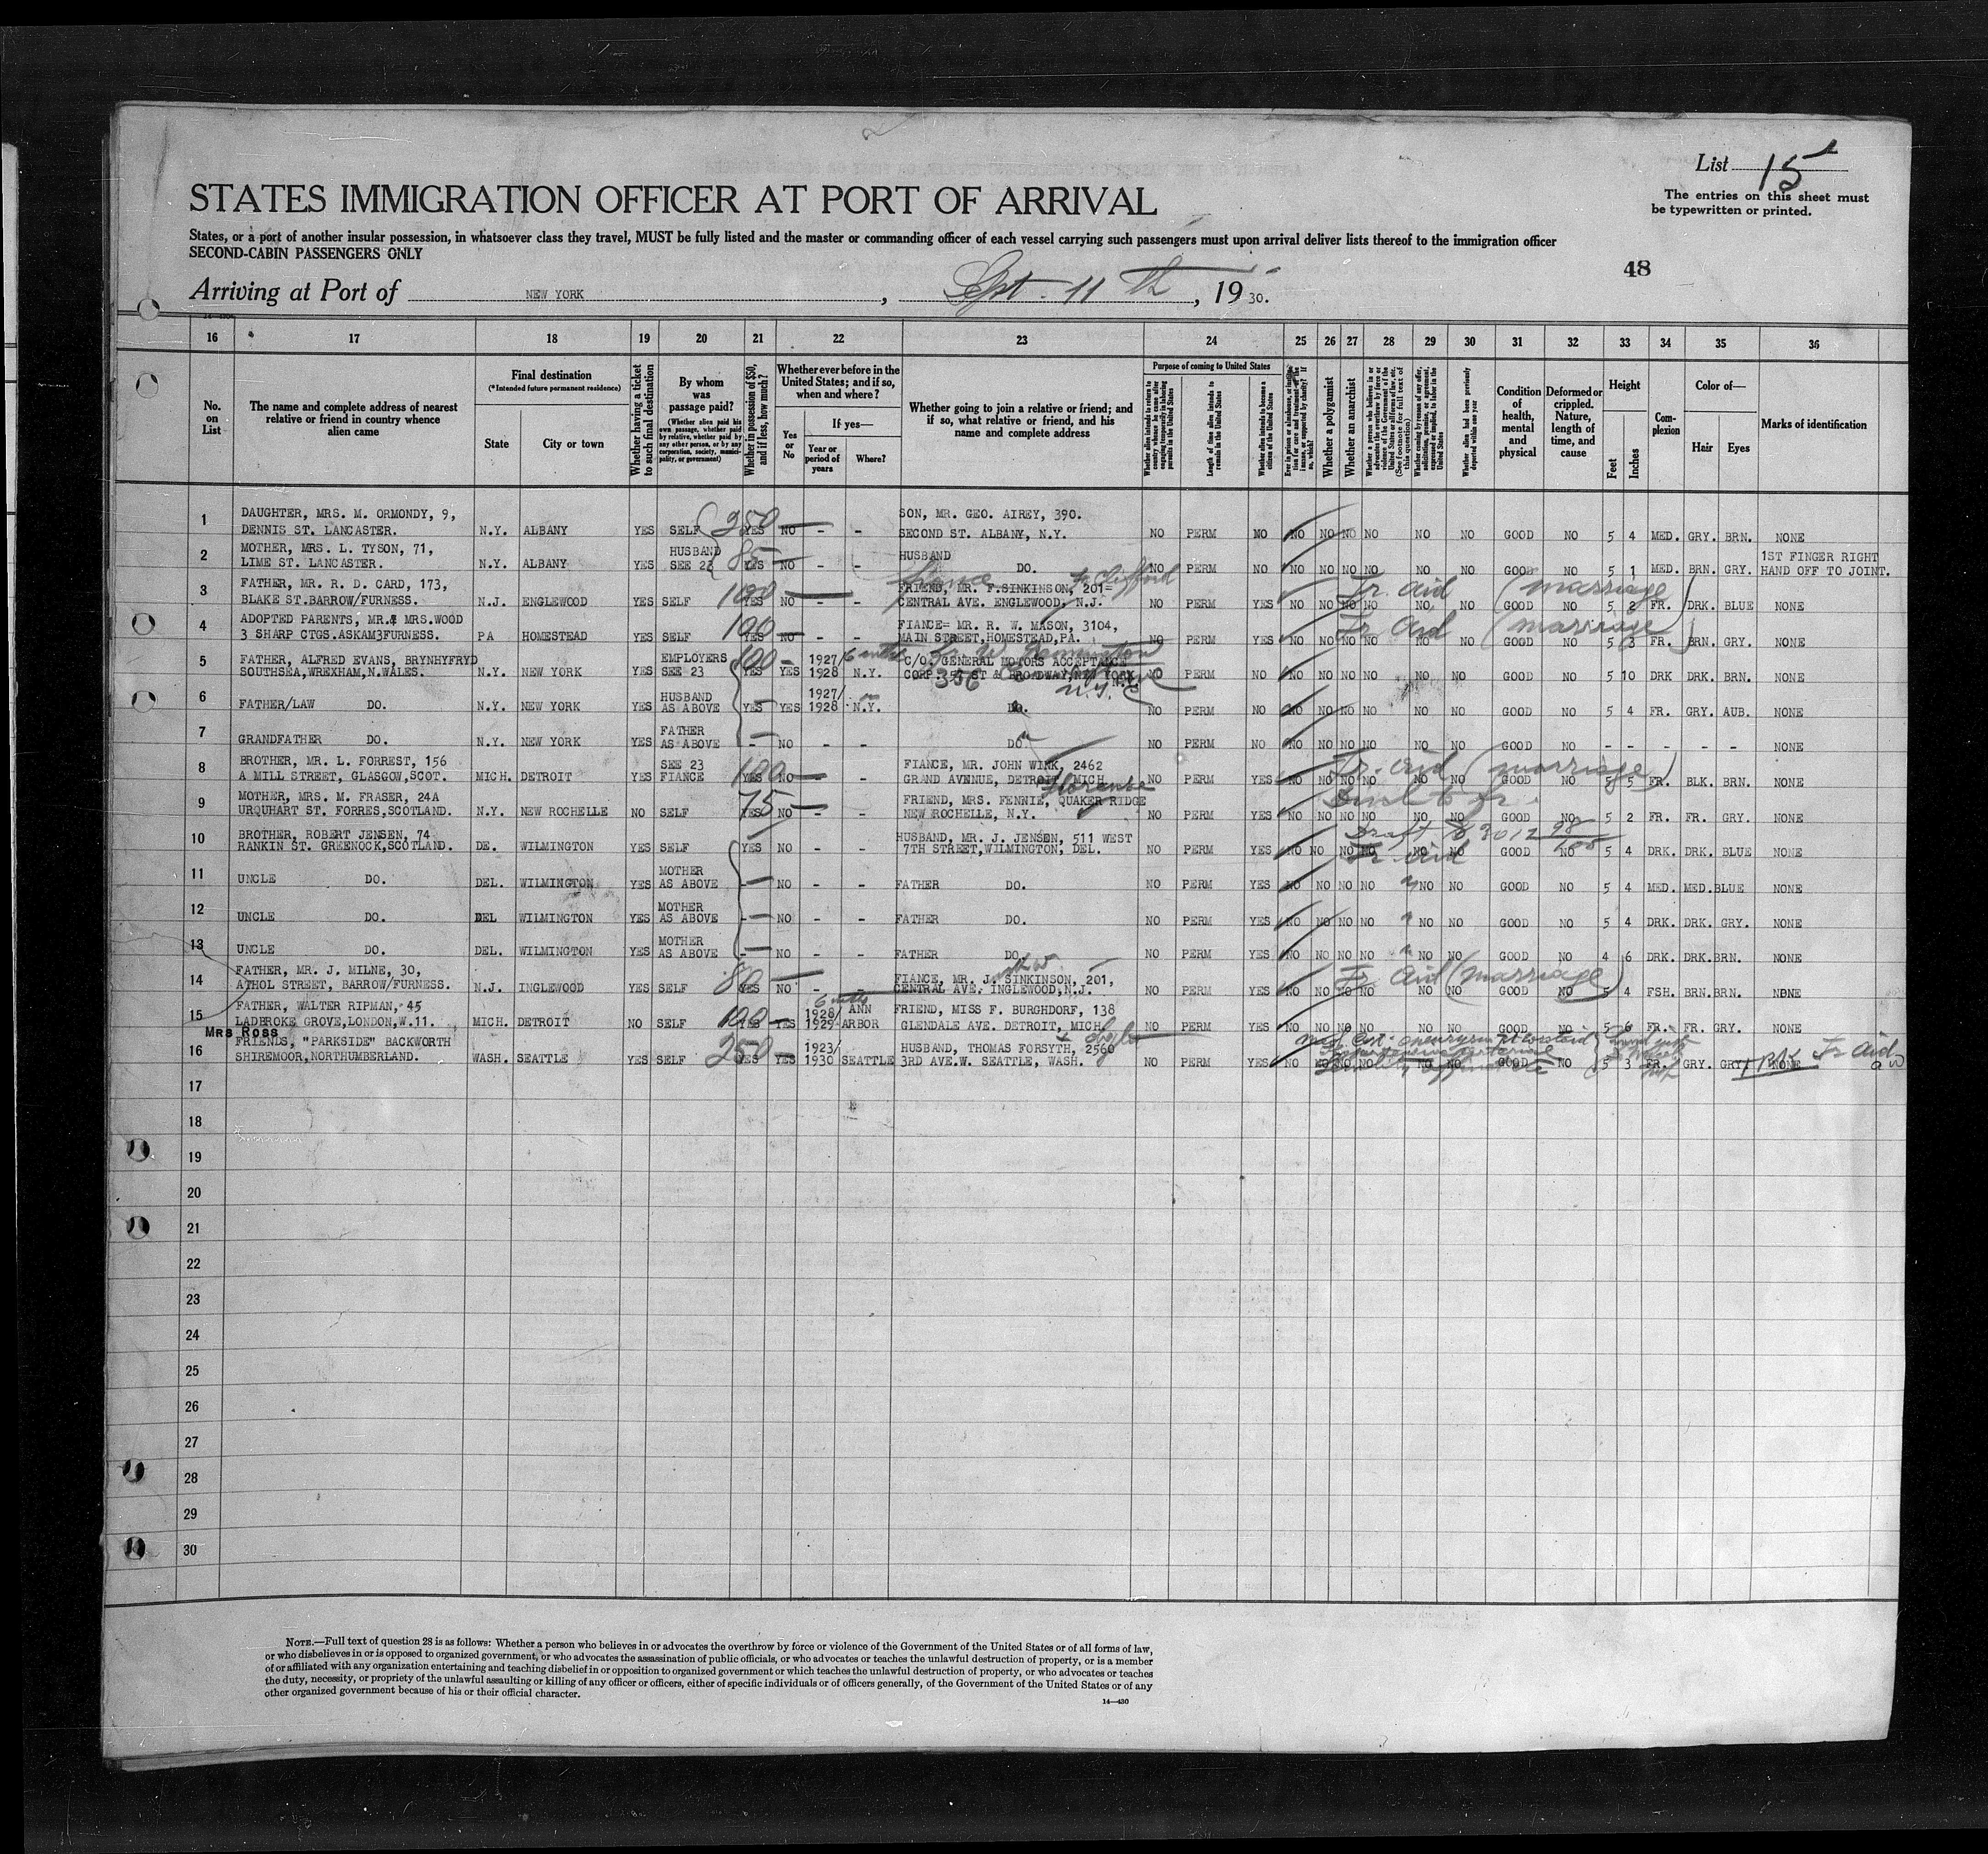 List 15
The entries on this sheet must
be typewritten or printed.
STATES IMMIGRATION OFFICER AT PORT OF ARRIVAL
States, or a port of another insular possession, in whatsoever class they travel, MUST be fully listed and the master or commanding officer of each vessel carrying such passengers must upon arrival deliver lists thereof to the immigration officer
SECOND-CABIN PASSENGERS ONLY
48
Arriving at Port of NEW YORK, Sept. 11th, 1930.
16 17 18 19 20 21 22 23 24 25 26 27 28 29 30 31 32 33 34 35 36
No. on List
The name and complete address of nearest relative or friend in country whence alien came
Final destination
(*Intended future permanent residence)
State
City or town
Whether having a ticket to such final destination
By whom was passage paid?
(Whether alien paid his own passage, whether paid by relative, whether paid by any other person, or by any corporation, society, municipality, or government)
Whether in possession of $50, and if less, how much?
Whether ever before in the United States; and if so, when and where?
Yes or No
If yes—
Year or period of years
Where?
Whether going to join a relative or friend; and if so, what relative or friend, and his name and complete address
Purpose of coming to United States
Length of time alien intends to remain in the United States
Whether alien intends to become a citizen of the United States
Whether a polygamist
Whether an anarchist
Condition of health, mental and physical
Deformed or crippled. Nature, length of time, and cause
Height
Feet
Inches
Complexion
Color of—
Hair
Eyes
Marks of identification
1 DAUGHTER, MRS. M. ORMONDY, 9, SON, MR. GEO. AIREY, 390.
DENNIS ST. LANCASTER. N.Y. ALBANY YES SELF 250 YES NO – – SECOND ST. ALBANY, N.Y. NO PERM NO NO NO NO NO NO NO GOOD NO 5 4 MED. GRY. BRN. NONE
2 MOTHER, MRS. L. TYSON, 71, HUSBAND HUSBAND 1ST FINGER RIGHT
LIME ST. LANCASTER. N.Y. ALBANY YES SEE 23 85 YES NO – – DO. NO PERM NO NO NO NO NO NO NO GOOD NO 5 1 MED. BRN. GRY. HAND OFF TO JOINT.
3 FATHER, MR. R. D. CARD, 173, FRIEND, MR. F. SINKINSON, 201= Clifford Fr. aid (marriage)
BLAKE ST.BARROW/FURNESS. N.J. ENGLEWOOD YES SELF 100 YES NO – – CENTRAL AVE. ENGLEWOOD, N.J. NO PERM YES NO NO NO NO NO NO GOOD NO 5 2 FR. DRK. BLUE NONE
4 ADOPTED PARENTS, MR.& MRS.WOOD FIANCE= MR. R. W. MASON, 3104, Fr Aid (marriage)
3 SHARP CTGS.ASKAM3FURNESS. PA HOMESTEAD YES SELF 100 YES NO – – MAIN STREET,HOMESTEAD,PA. NO PERM YES NO NO NO NO NO NO GOOD NO 5 3 FR. BRN. GRY. NONE
5 FATHER, ALFRED EVANS, BRYNHYFRYD EMPLOYERS 1927/ C/O. GENERAL MOTORS ACCEPTANCE
SOUTHSEA,WREXHAM,N.WALES. N.Y. NEW YORK YES SEE 23 100 YES YES 1928 N.Y. CORP. ST & BROADWAY,NEW YORK NO PERM NO NO NO NO NO NO NO GOOD NO 5 10 DRK DRK. BRN. NONE
6 HUSBAND 1927/
FATHER/LAW DO. N.Y. NEW YORK YES AS ABOVE YES YES 1928 N.Y. DO. NO PERM NO NO NO NO NO NO NO GOOD NO 5 4 FR. GRY. AUB. NONE
7 FATHER
GRANDFATHER DO. N.Y. NEW YORK YES AS ABOVE – NO – – DO. NO PERM NO NO NO NO NO NO NO GOOD NO – – – – – NONE
8 BROTHER, MR. L. FORREST, 156 SEE 23 FIANCE, MR. JOHN WINK, 2462 Fr. aid (marriage)
A MILL STREET, GLASGOW,SCOT. MICH. DETROIT YES FIANCE 100 YES NO – GRAND AVENUE, DETROIT, MICH. NO PERM YES NO NO NO NO NO NO GOOD NO 5 5 FR. BLK. BRN. NONE
9 MOTHER, MRS. M. FRASER, 24A Florence FRIEND, MRS. FENNIE, QUAKER RIDGE
URQUHART ST. FORRES,SCOTLAND. N.Y. NEW ROCHELLE NO SELF 75 YES NO – – NEW ROCHELLE, N.Y. NO PERM YES NO NO NO NO NO NO GOOD NO 5 2 FR. FR. GRY. NONE
10 BROTHER, ROBERT JENSEN, 74 HUSBAND, MR. J. JENSEN, 511 WEST Draft
RANKIN ST. GREENOCK,SCOTLAND. DE. WILMINGTON YES SELF YES NO – – 7TH STREET,WILMINGTON, DEL. NO PERM YES NO NO NO NO NO NO GOOD NO 5 4 DRK. DRK. BLUE NONE
Fr aid
11 MOTHER
UNCLE DO. DEL. WILMINGTON YES AS ABOVE – NO – – FATHER DO. NO PERM YES NO NO NO NO NO NO GOOD NO 5 4 MED. MED.BLUE NONE
12 MOTHER
UNCLE DO. DEL WILMINGTON YES AS ABOVE – NO – – FATHER DO. NO PERM YES NO NO NO NO NO NO GOOD NO 5 4 DRK. DRK. GRY. NONE
13 MOTHER
UNCLE DO. DEL. WILMINGTON YES AS ABOVE – NO – – FATHER DO. NO PERM YES NO NO NO NO NO NO GOOD NO 4 6 DRK. DRK.BRN. NONE
14 FATHER, MR. J. MILNE, 30, FIANCE, MR. J. SINKINSON, 201, Fr Aid (marriage)
ATHOL STREET, BARROW/FURNESS. N.J. INGLEWOOD YES SELF 80 YES NO – – CENTRAL AVE. INGLEWOOD,N.J. NO PERM YES NO NO NO NO NO NO GOOD NO 5 4 FSH. BRN.BRN. NONE
15 FATHER, WALTER RIPMAN, 45 6 mths 1928/ ANN FRIEND, MISS F. BURGHDORF, 138
LADBROKE GROVE,LONDON,W.11. MICH. DETROIT NO SELF 100 YES YES 1929 ARBOR GLENDALE AVE. DETROIT, MICH. NO PERM YES NO NO NO NO NO NO GOOD NO 5 6 FR. FR. GRY. NONE
Mrs Ross
16 FRIENDS, "PARKSIDE" BACKWORTH 1923/ HUSBAND, THOMAS FORSYTH, 2560
SHIREMOOR,NORTHUMBERLAND. WASH. SEATTLE YES SELF 250 YES YES 1930 SEATTLE 3RD AVE.W. SEATTLE, WASH. NO PERM YES NO NO NO NO NO NO GOOD NO 5 3 FR. GRY. GRY. NONE Fr Aid
17
18
19
20
21
22
23
24
25
26
27
28
29
30
NOTE.—Full text of question 28 is as follows: Whether a person who believes in or advocates the overthrow by force or violence of the Government of the United States or of all forms of law,
or who disbelieves in or is opposed to organized government, or who advocates the assassination of public officials, or who advocates or teaches the unlawful destruction of property, or is a member
of or affiliated with any organization entertaining and teaching disbelief in or opposition to organized government or which teaches the unlawful destruction of property, or who advocates or teaches
the duty, necessity, or propriety of the unlawful assaulting or killing of any officer or officers, either of specific individuals or of officers generally, of the Government of the United States or of any
other organized government because of his or their official character.
14—430